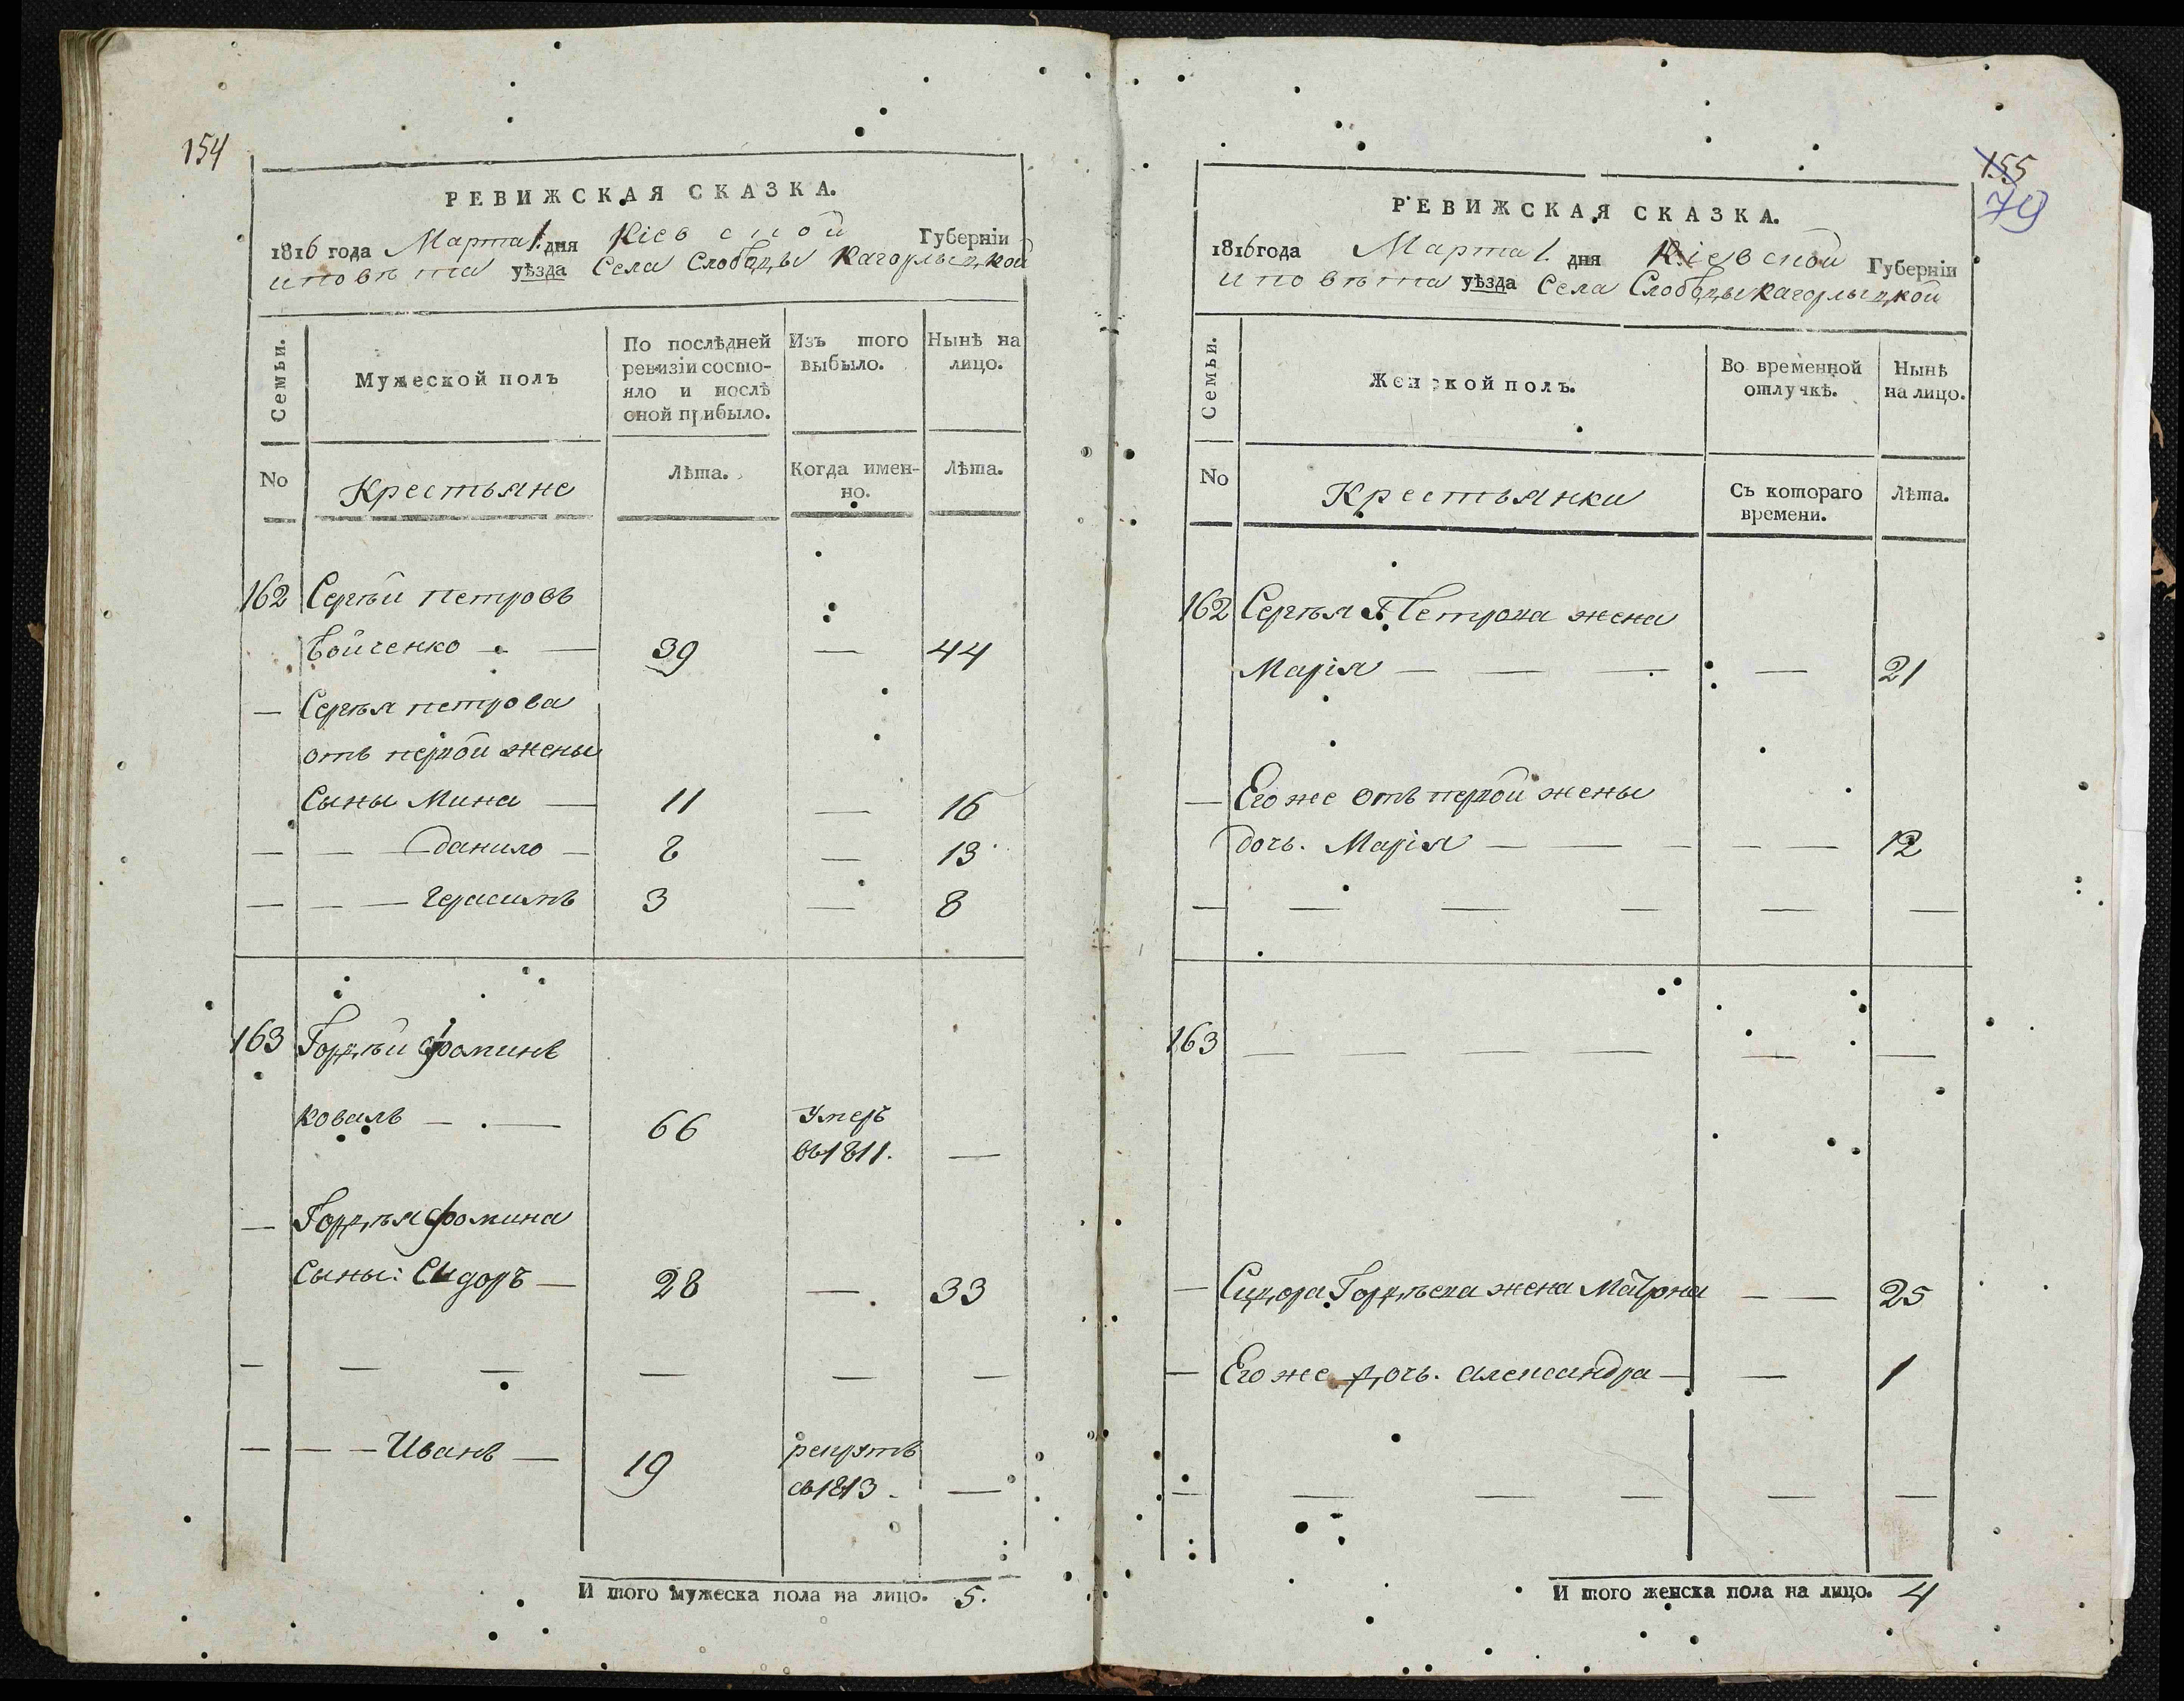 154
РЕВИЖСКАЯ СКАЗКА.
1816 года Марта 1. дня Кіевской Губерніи
и повѣта уѣзда Села Слободы Кагорлыцкой
Семьи.
Мужеской полъ
По послѣдней ревизіи состо-
яло и послѣ
оной прибыло.
Изъ того
выбыло.
Нынѣ на
лицо.
No
Крестьяне
Лѣта.
Когда имен-
но.
Лѣта.
162 Сергѣй петровъ
Бойченко — — 39 — 44
— Сергѣя петрова
отъ первой жены
Сыны Мина — 11 — 16
— — Данило — 8 — 13
— — — Герасимъ 3 — 8
163 Гордѣй Фоминъ
Коваль — — 66 Умеръ
въ 1811. —
— Гордѣя Фомина
Сыны: Сидоръ — 28 — 33
— — — — — —
— — — Иванъ — 19 рекрутъ
въ 1813. —
И того мужеска пола на лицо. 5.
155
79
РЕВИЖСКАЯ СКАЗКА.
1816 года Марта 1. дня Кіевской Губерніи
и повѣта уѣзда Села Слободы Кагорлыцкой
Семьи.
Женской полъ.
Во временной
отлучкѣ.
Нынѣ
на лицо.
No
Крестьянки
Съ котораго
времени.
Лѣта.
162 Сергѣя Петрова жена
Марія — — — — 21
— Его же отъ первой жены
дочь. Марія — — — — — 12
— — — — — —
163 — — — — — —
— Сидора Гордѣева жена Матрона — — 25
— Его же дочь. Александра — — 1
— — — — — —
И того женска пола на лицо. 4